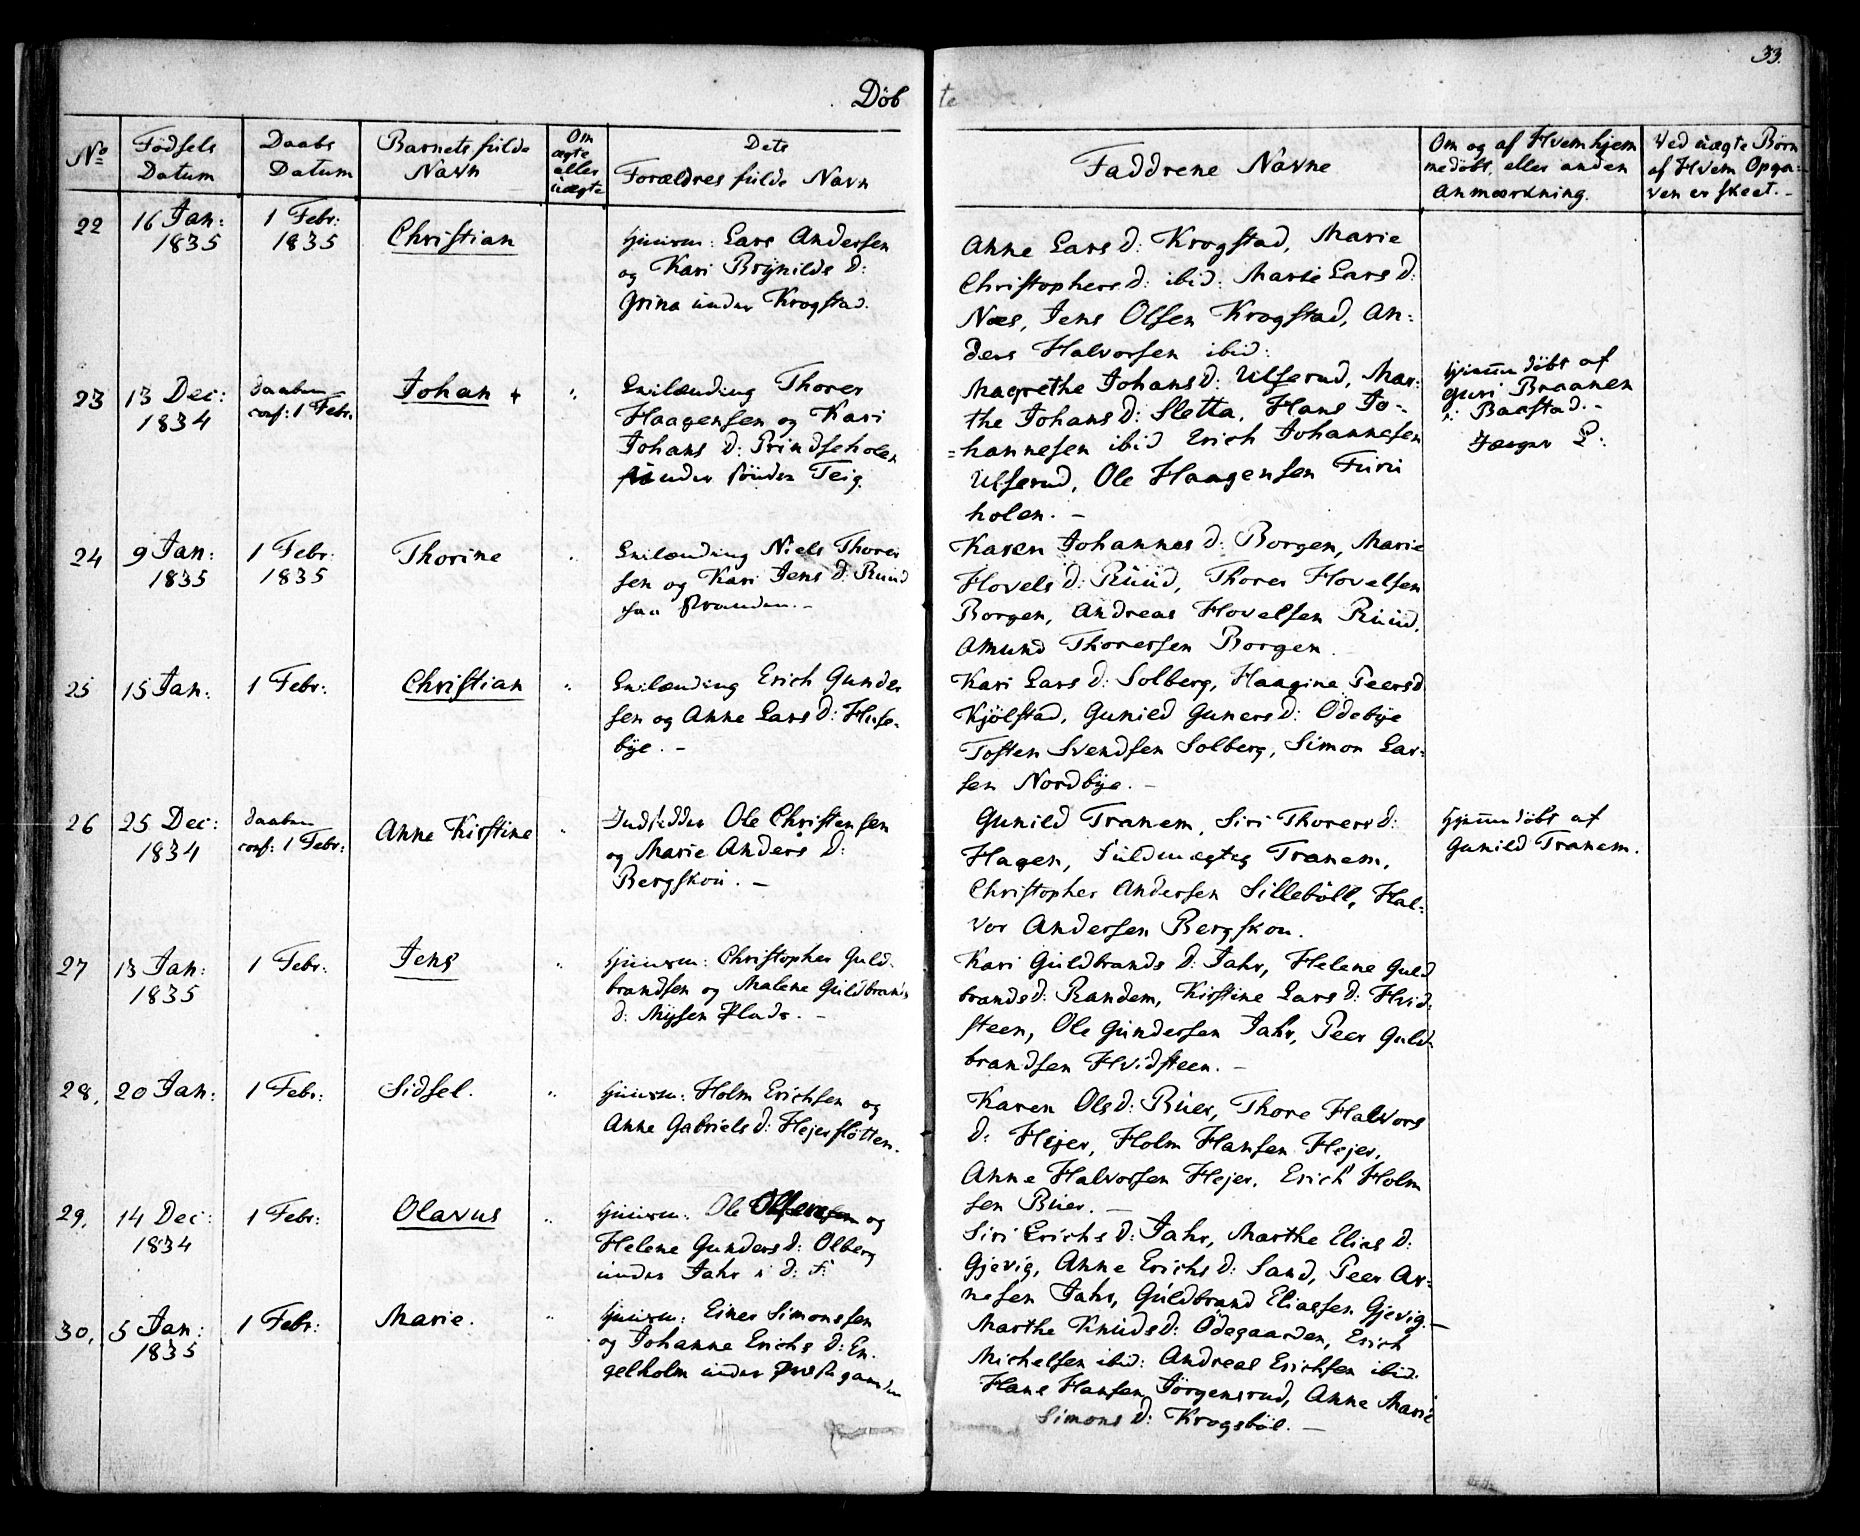 33.
Döbte
No
Födsels Datum
Daabs Datum
Barnets fulde Navn
Om ægte eller uægte
Dets Forældres fulde Navn
Faddrene Navne
Om og af Hvem hjem
medöbt, eller anden
Anmærkning.
Ved uægte Börn
af Hvem Opga-
ven er skeet. -
22
16 Jan: 1835
1 Febr: 1835
Christian
Lars Andersen
og Kari Brynilds d:
Grina under Krogstad.
Anne Lars d: Krogstad, Marie
Christophers d: ibid: Marie Lars d:
Næs, Jens Olsen Krogstad, An:
ders Halvorsen ibid:
23
13 Dec: 1834
Daaben conf: 1 Febr:
Johan +
"
Thorer
Haagensen og Kari
Johans d: Prindseholen
under sönder Teig
Magrethe Johans d: Ulserud, Mar:
the Johans d: Sletta, Hans Jo-
=hannesen ibid Erich Johannesen
Ulserud, Ole Haagensen Furu
holen. -
Hjemmedöbt af
Guri Braanen
i Baastad. -
24
9 Jan: 1835
1 Febr: 1835
Thorine
"
Niels Thorer
sen og Kari Jens d: Ruud
paa Stranden. -
Karen Johannes d: Borgen, Marie
Hovels d: Ruud, Thorer Hovelsen
Borgen, Andreas Hovelsen Ruud,
Amund Thorersen Borgen.
25
15 Jan:
1 Febr:
Christian
"
Erich Gunder
sen og Anne Lars d: Huse-
bye. -
Kari Lars d: Solberg, Haagine Peersd
Kjölstad, Gunild Guners d: Odebye
Tosten Svendsen Solberg, Simon Lar-
sen Nordbye. -
26
25 Dec: 1834
Daaben conf: 1 Febr:
Anne Kirstine
"
Indsidder Ole Christensen
og Marie Anders d:
Bergskou. -
Gunild Tranem, Siri Thorers d:
Hagen, Fuldmægtig Tranem,
Christopher Andersen Silleböll, Hal-
vor Andersen Bergskou.
Hjemmedöbt af
Gunild Tranem.
27
13 Jan: 1835
1 Febr:
Jens
"
Christopher Guld-
brandsen og Malene Guldbrands
d: Mysen Plads. -
Kari Guldbrands d: Jahr, Helene Guld
brands d: Randem, Kirstine Lars d: Hvid-
steen, Ole Gundersen Jahr, Peer Guld-
brandsen Hvidsteen. -
28.
20 Jan:
1 Febr:
Sidsel.
"
Holm Erichsen og
Anne Gabriels d: Hejerslötten.
Karen Ols d: Buer, Thore Halvors
d: Hejer, Holm Hansen Hejer,
Anne Halvorsen Hejer, Erich Holm
sen Buer. -
29.
14 Dec: 1834
1 Febr:
Olavus
"
Ole og
Helene Gunders d: Olberg
under Jahr i d: F:
Siri Erichs d: Jahr, Marthe Elias d:
Gjevig, Anne Erichs d: Sand, Peer Ar-
nesen Jahr, Guldbrand Eliassen Gjevig. -
30.
5 Jan: 1835
1 Febr:
Marie.
"
Einer Simonsen
og Johanne Erichs d: En-
gelholm under
Marthe Knuds d: Ödegaarden, Erich
Michelsen ibid: Andreas Erichsen ibid.
Hans Hansen Jörgensrud, Anne Marie
Simons d: Krogsböl. -